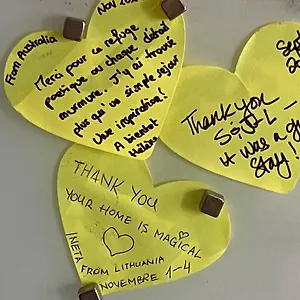 From Australia
Nov 202
Merci pour ce refuge
poétique où chaque détail
murmure. J'y ai trouvé
plus qu'un simple séjour
Une inspiration!
A bientôt
Thank you
it was a
stay!
THANK YOU
YOUR HOME IS MAGICAL
INETA
FROM LITHUANIA
NOVEMBRE 1-4